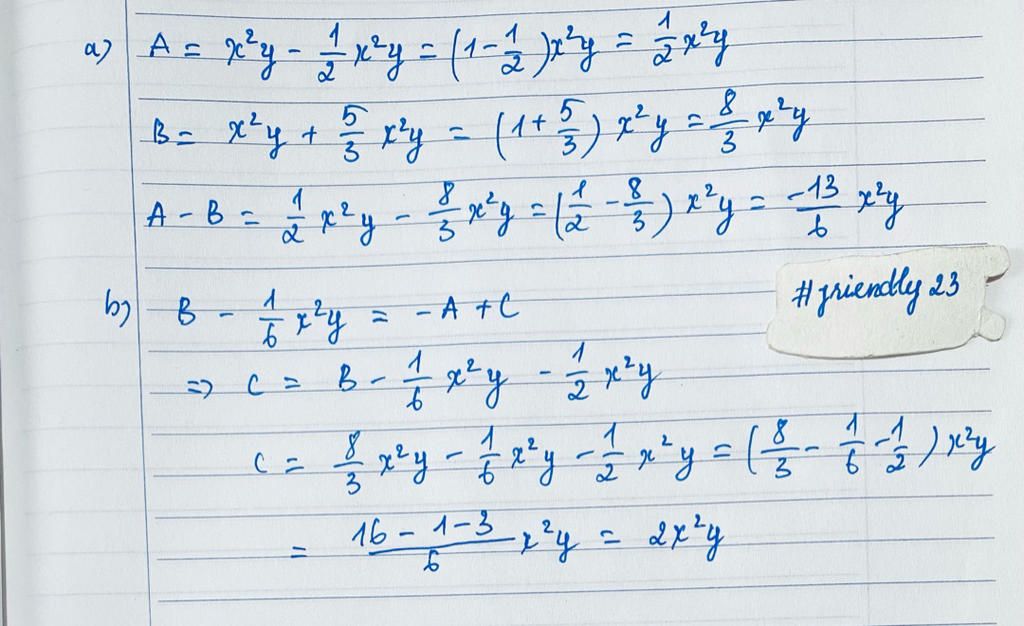 a) A = x²y - 1/2 x²y = (1 - 1/2)x²y = 1/2 x²y
B = x²y + 5/3 x²y = (1 + 5/3) x²y = 8/3 x²y
A - B = 1/2 x²y - 8/3 x²y = (1/2 - 8/3) x²y = -13/6 x²y
#friendly 23
b) B - 1/6 x²y = -A + C
=> C = B - 1/6 x²y - 1/2 x²y
C = 8/3 x²y - 1/6 x²y - 1/2 x²y = (8/3 - 1/6 - 1/2) x²y
= (16 - 1 - 3)/6 x²y = 2x²y